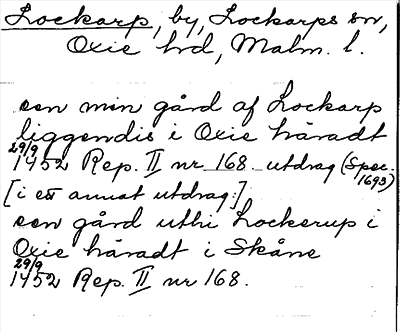 Lockarp, by, Lockarps sn,
Oxie hd, Malm. l.
een min gård af Lockarp
liggendis i Oxie häradt
29/9 1452 Rep. II nr 168. utdrag (Spec. 1693)
[i ett annat utdrag:]
een gård uthi Lockerup i
Oxie häradt i Skåne
29/9 1452 Rep. II nr 168.